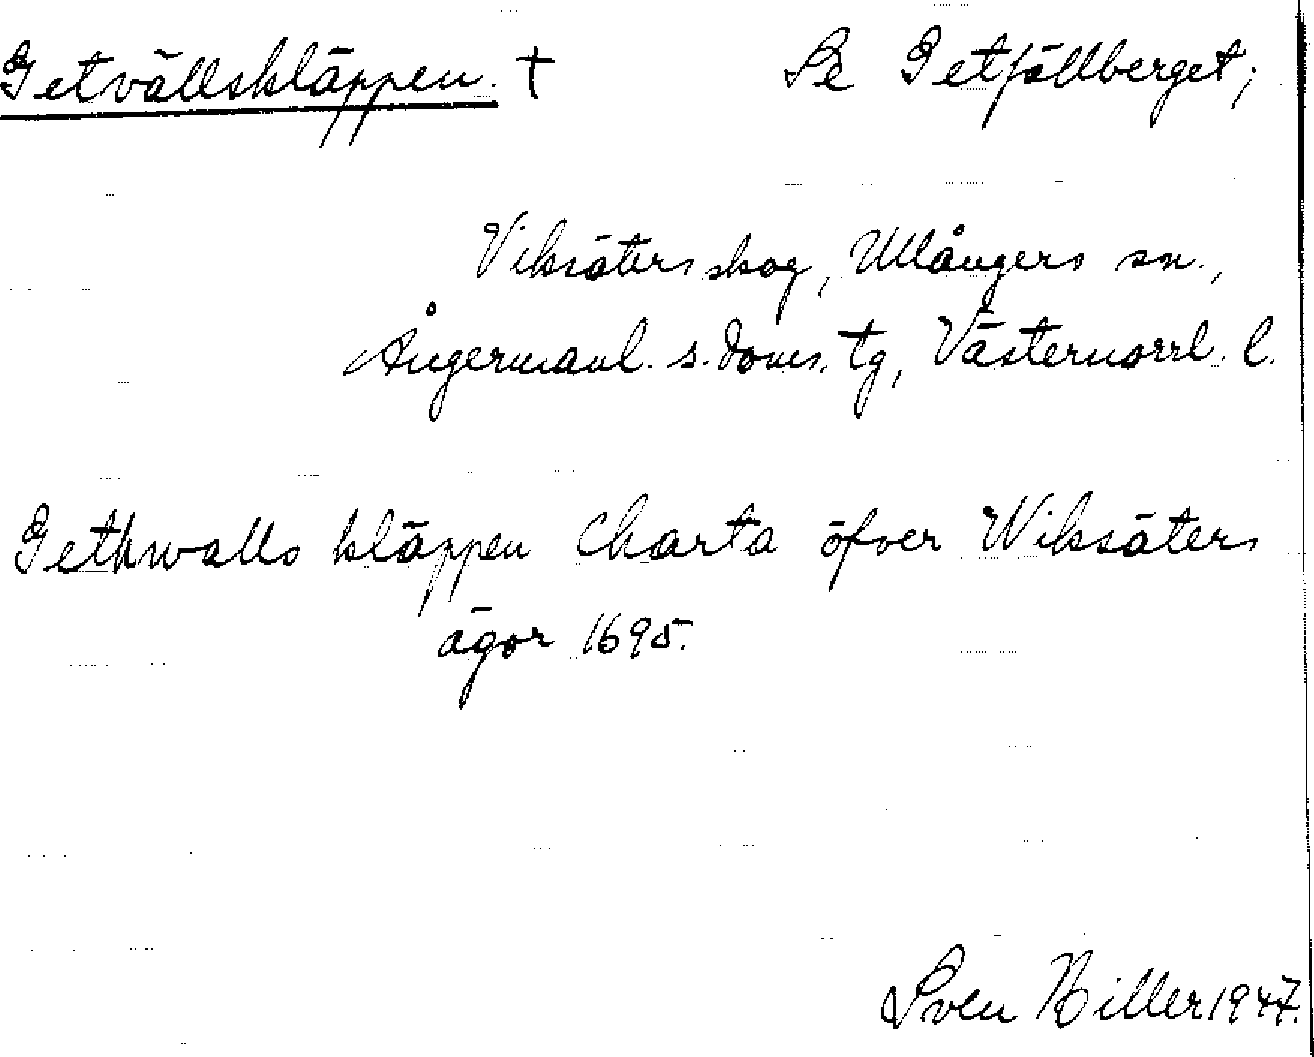 Getvällskläppen. † Se Getfällberget;
Viksäters skog, Ullångers sn.,
Ångermanl. s. doms. tg, Västernorrl. l.
Gethwalls kläppen Charta öfver Wiksäters
ägor 1695.
Sven Hiller 1947.